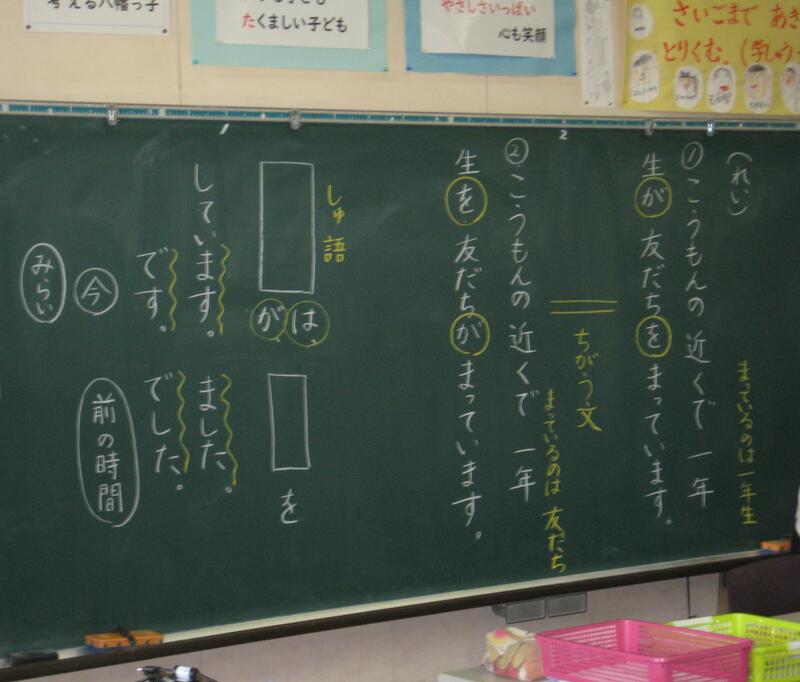 考える八幡っ子
たくましい子ども
やさしさいっぱい
心も笑顔
さいごまで あき
とりくむ。(学しゅう
1
2
(れい)
まっているのは一年生
① こうもんの 近くで 一年
生が 友だちを まっています。
ちがう文
まっているのは 友だち
② こうもんの 近くで 一年
生を 友だちが まっています。
しゅ語
は、
が
を
しています。
ました。
です。
でした。
今
前の時間
みらい